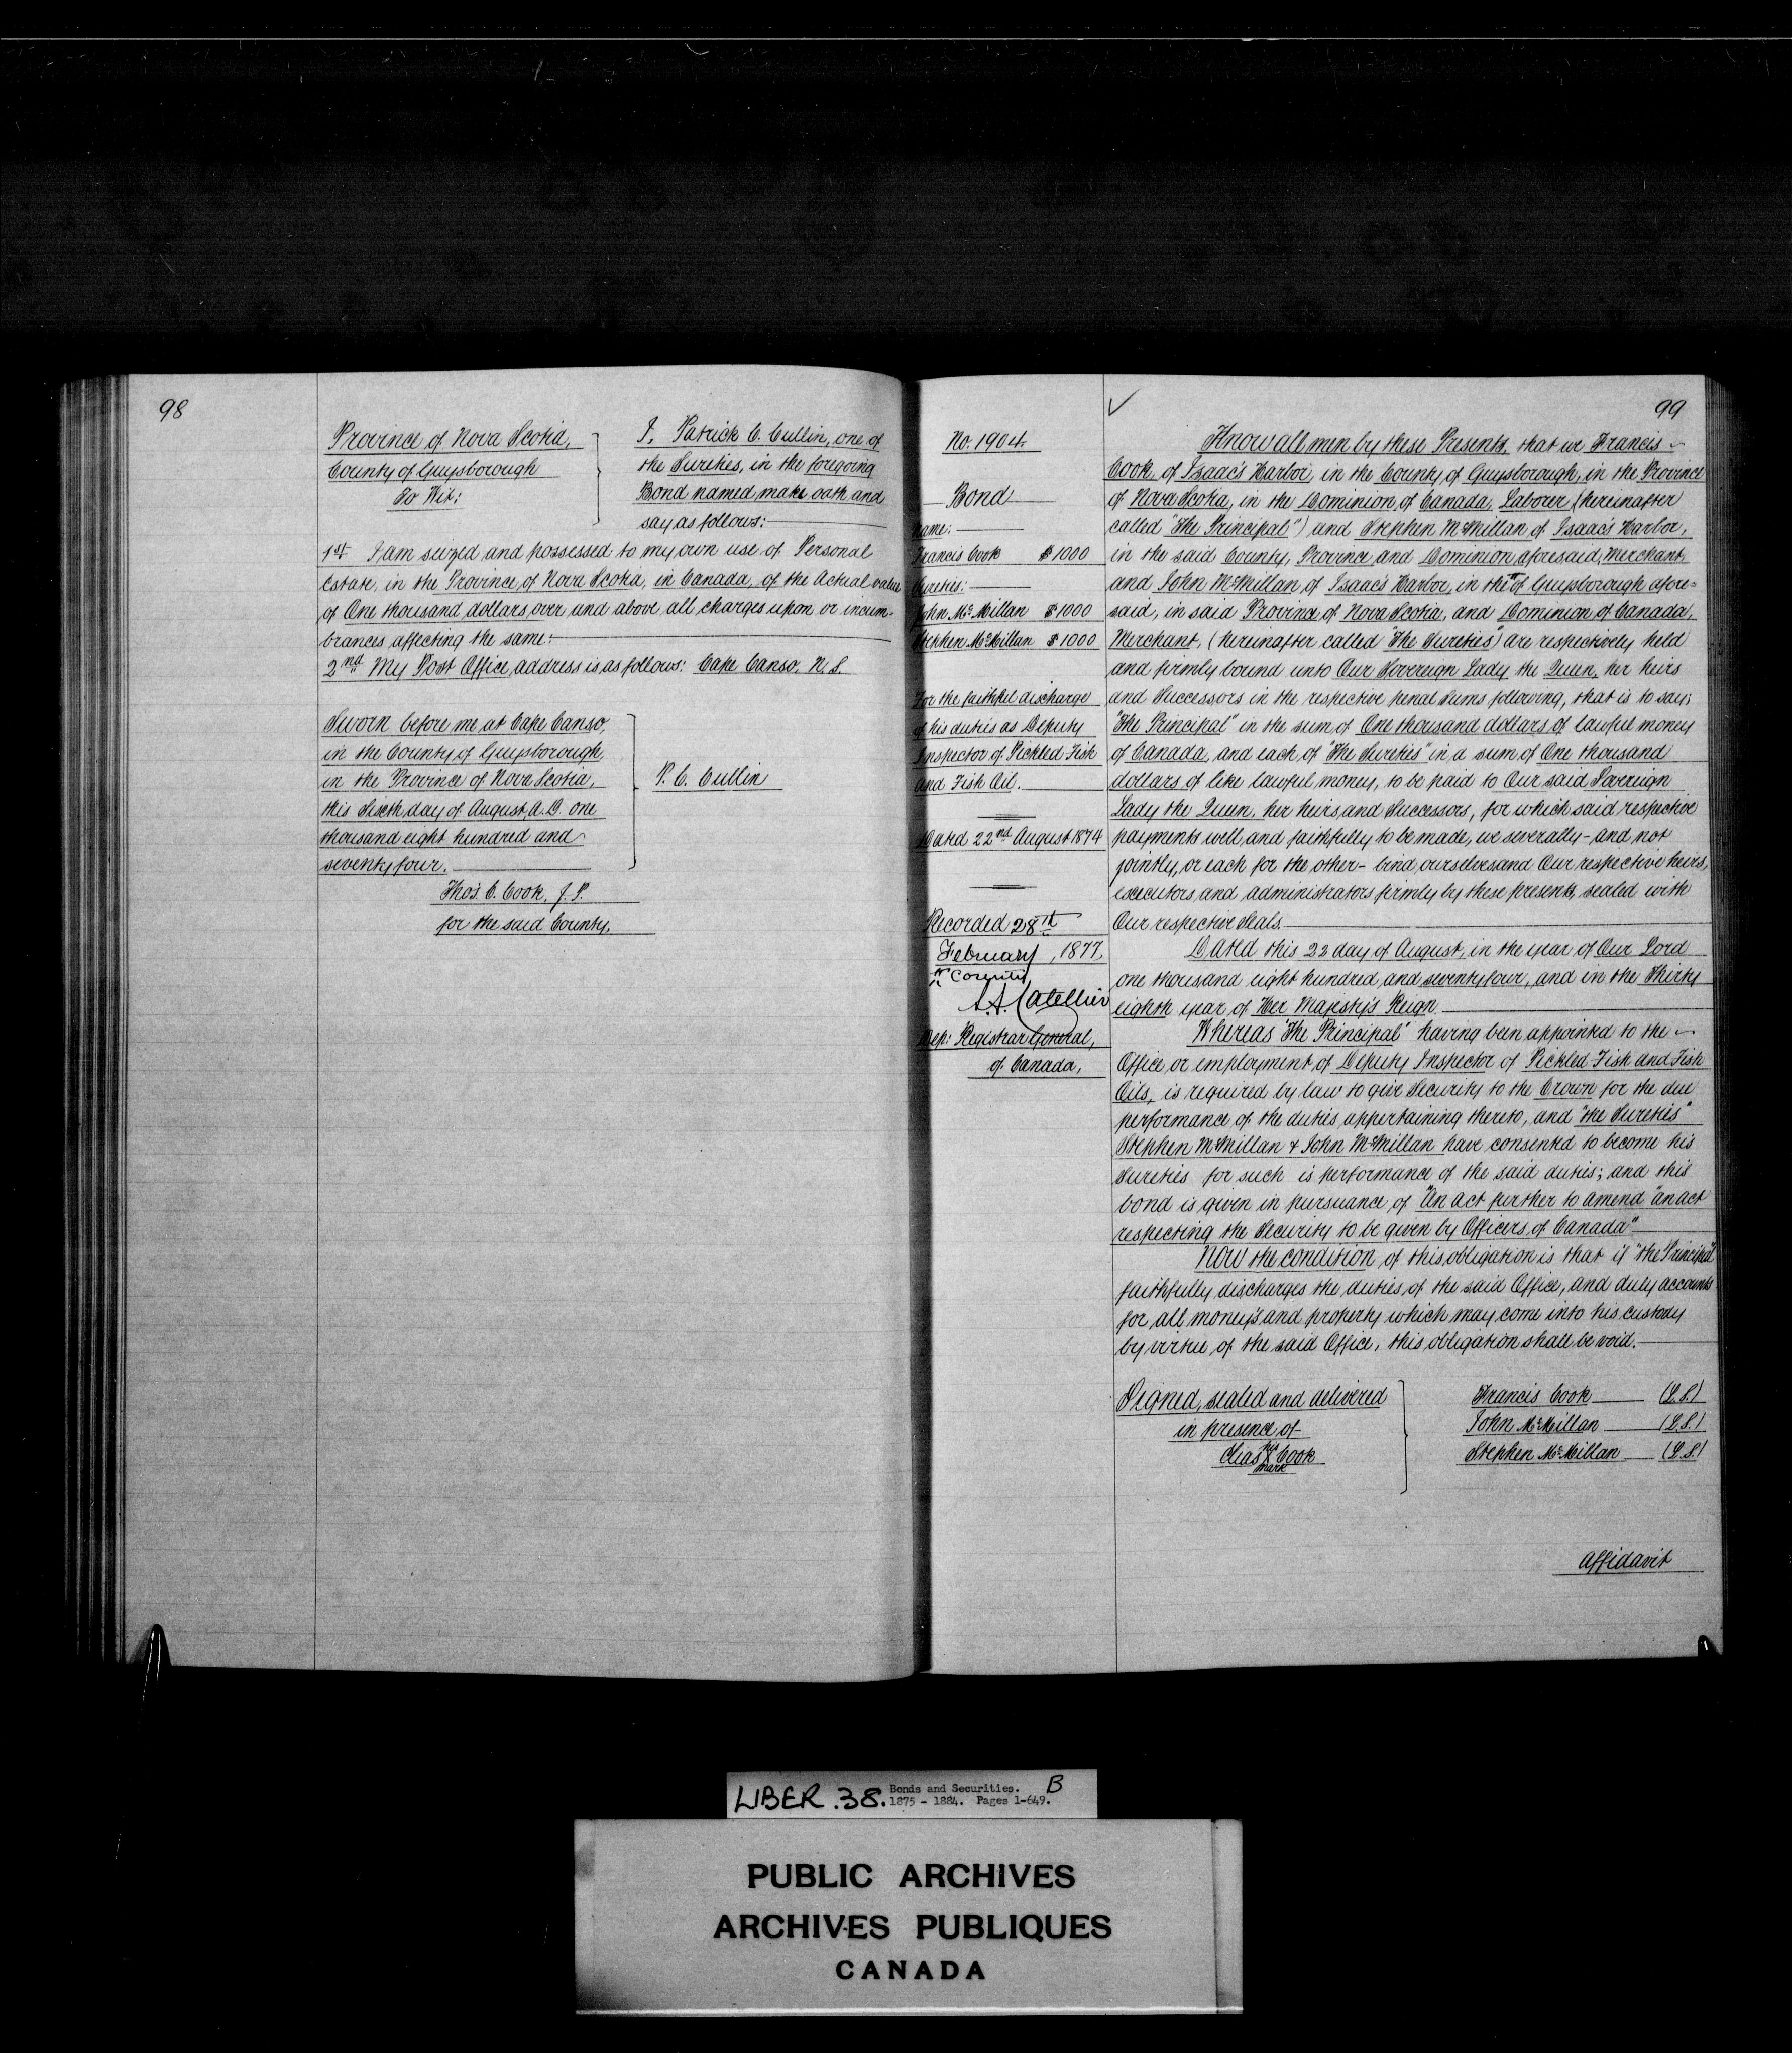 98
Province of Nova Scotia,
County of Guysborough
To Wit:
I, Patrick C. Cullin, one of
the Sureties, in the foregoing
Bond named make oath and
say as follows:
1st I am seized and possessed to my own use of Personal
Estate, in the Province of Nova Scotia, in Canada, of the Actual value
of One thousand dollars, over and above all charges upon or incum-
brances affecting the same:
2nd My Post Office address is as follows: Cape Canso, N.S.
Sworn before me at Cape Canso,
in the County of Guysborough,
in the Province of Nova Scotia,
this Sixth day of August, A.D. one
thousand eight hundred and
seventy four.
P. C. Cullin
Thos. C. Cook, J.P.
for the said County.
99
No. 1904
Bond
Name:
Francis Cook $1000
Sureties:
John McMillan $1000
Stephen McMillan $1000
For the faithful discharge
of his duties as Deputy
Inspector of Pickled Fish
and Fish Oil.
Dated 22nd August 1874
Recorded 28th
February, 1877,
Dep: Registrar General,
of Canada,
Know all men by these Presents, that we Francis
Cook, of Isaac's Harbor, in the County of Guysborough, in the Province
of Nova Scotia, in the Dominion of Canada, Laborer (hereinafter
called "The Principal") and Stephen McMillan of Isaac's Harbor,
in the said County, Province and Dominion aforesaid, Merchant,
and John McMillan of Isaac's Harbor, in the of Guysborough afore=
said, in said Province of Nova Scotia, and Dominion of Canada,
Merchant, (hereinafter called "The Sureties") are respectively held
and firmly bound unto Our Sovereign Lady the Queen, her heirs
and Successors in the respective penal Sums following, that is to say;
"The Principal" in the sum of One thousand dollars of lawful money
of Canada, and each of "The Sureties" in a sum of One thousand
dollars of like lawful money, to be paid to Our said Sovereign
Lady the Queen, her heirs, and Successors, for which said respective
payments well, and faithfully to be made, we severally - and not
jointly, or each for the other - bind ourselves and Our respective heirs,
executors, and administrators firmly by these presents, sealed with
Our respective Seals.
Dated this 22 day of August, in the year of Our Lord
one thousand eight hundred and seventy four, and in the Thirty
eighth year of Her Majesty's Reign.
Whereas "The Principal" having been appointed to the
Office, or employment, of Deputy Inspector of Pickled Fish and Fish
Oils, is required by law to give Security to the Crown for the due
performance of the duties appertaining thereto, and "the Sureties"
Stephen McMillan & John McMillan have consented to become his
Sureties for such is performance of the said duties; and this
bond is given in pursuance, of "An Act further to amend "an act
respecting the Security to be given by Officers of Canada"
Now the condition of this obligation is that if "the Principal"
faithfully discharges the duties, of the said Office, and duly accounts
for all moneys and property which may come into his custody
by virtue of the said Office, this obligation shall be void.
Signed, sealed and delivered
in presence of
his
Elias X Cook
mark
Francis Cook (L.S.)
John McMillan (L.S.)
Stephen McMillan (L.S.)
Affidavit
LIBER.38. Bonds and Securities. B
1875 - 1884. Pages 1-649.
PUBLIC ARCHIVES
ARCHIVES PUBLIQUES
CANADA